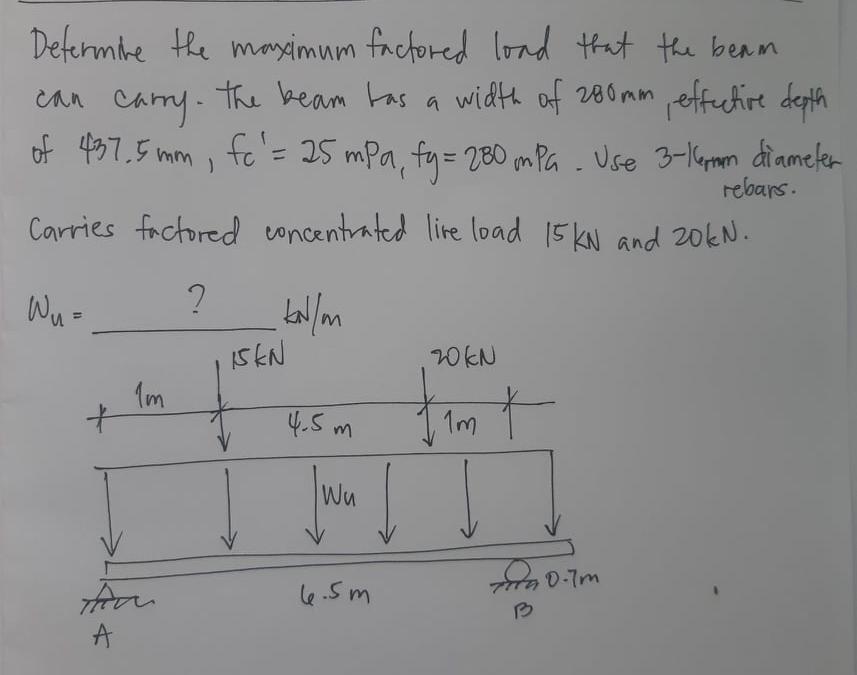 Determine the maximum factored load that the beam
can carry. The beam has a width of 280mm, effective depth
of 437.5 mm, fc' = 25 mPa, fy = 280 mPa. Use 3-16mm diameter
rebars.
Carries factored concentrated live load 15 kN and 20kN.
Wu = ? kN/m
15 kN 20 kN
1m
4.5 m 1m
Wu
6.5 m 0.7m
A B